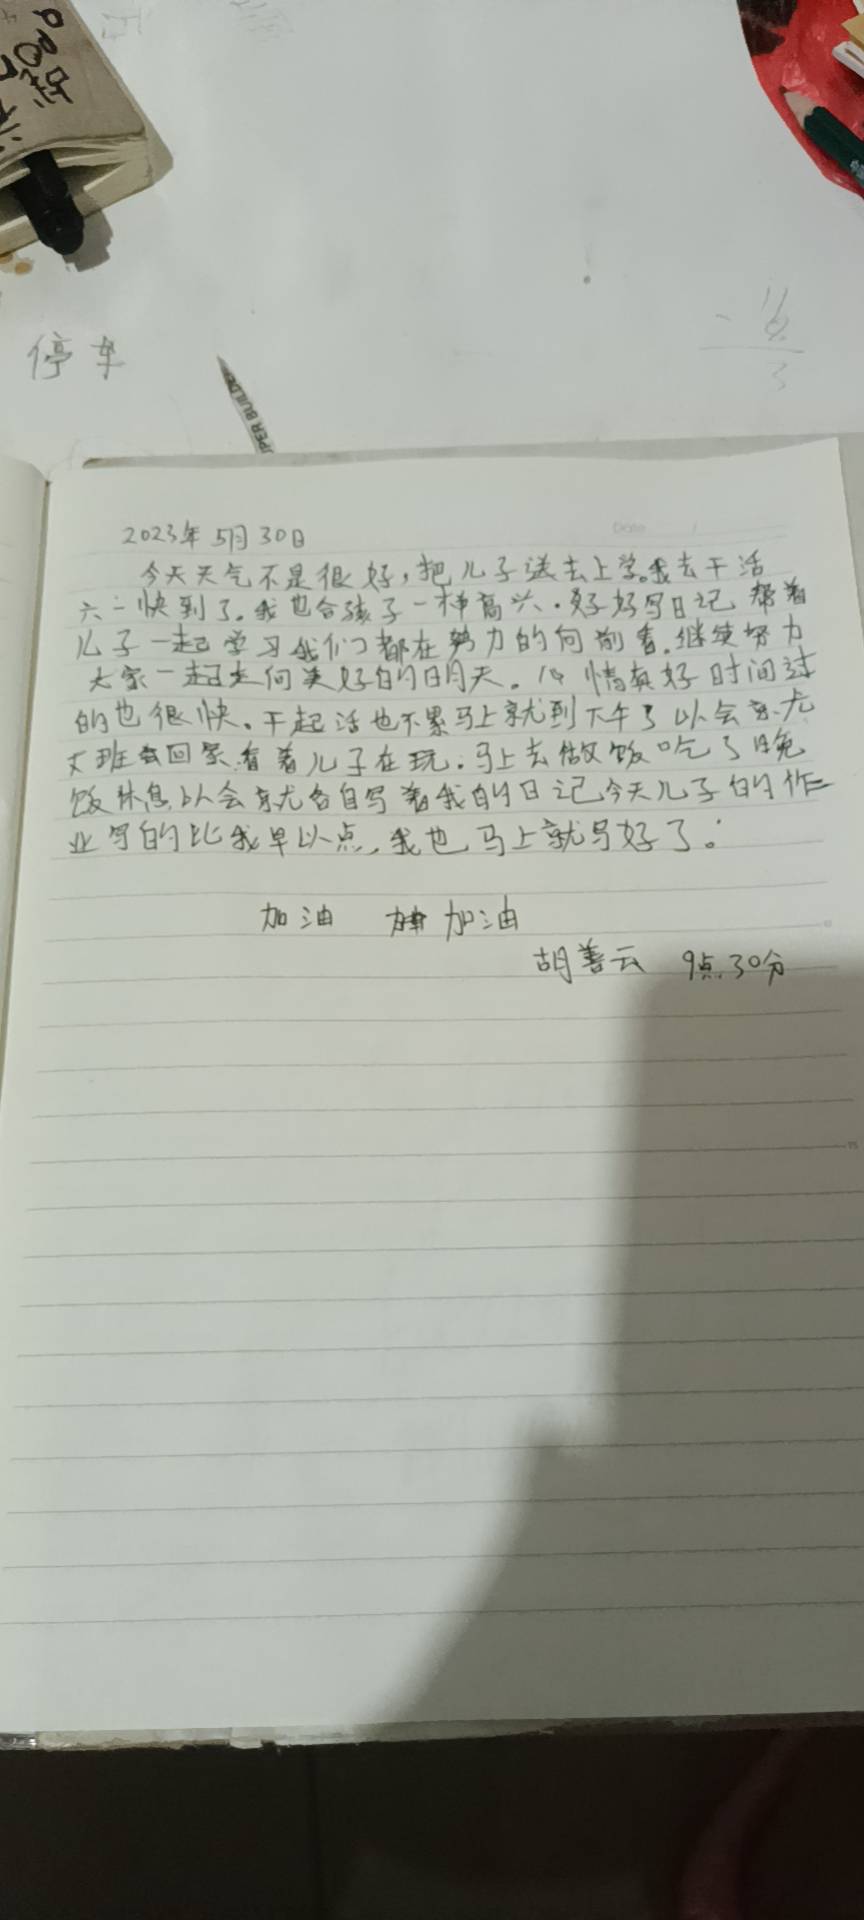 停车
11
3
PER BUILDE
Date
2023年5月30日
今天天气不是很好，把儿子送去上学。我去干活
六一快到了。我也合孩子一样高兴．好好写日记 帮着
儿子一起学习我们都在努力的向前看．继续努力
大家一起走向美好的明天。心情真好时间过
的也很快．干起活也不累马上就到下午了以会就
下班去回家．看着儿子在玩．马上去做饭吃了晚
饭休息以会就各自写着我的日记今天儿子的作
业写的比我早以点．我也马上就写好了．
加油 加油
胡善云 9点30分
15